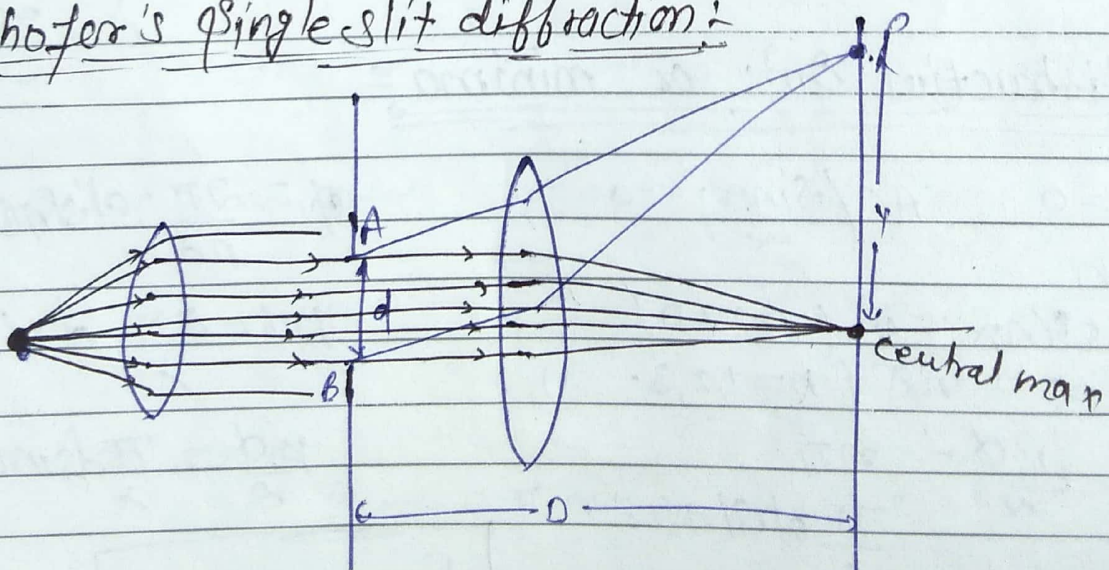 hofer's Single slit diffraction:-
P
A
Y
d
central max
B
D